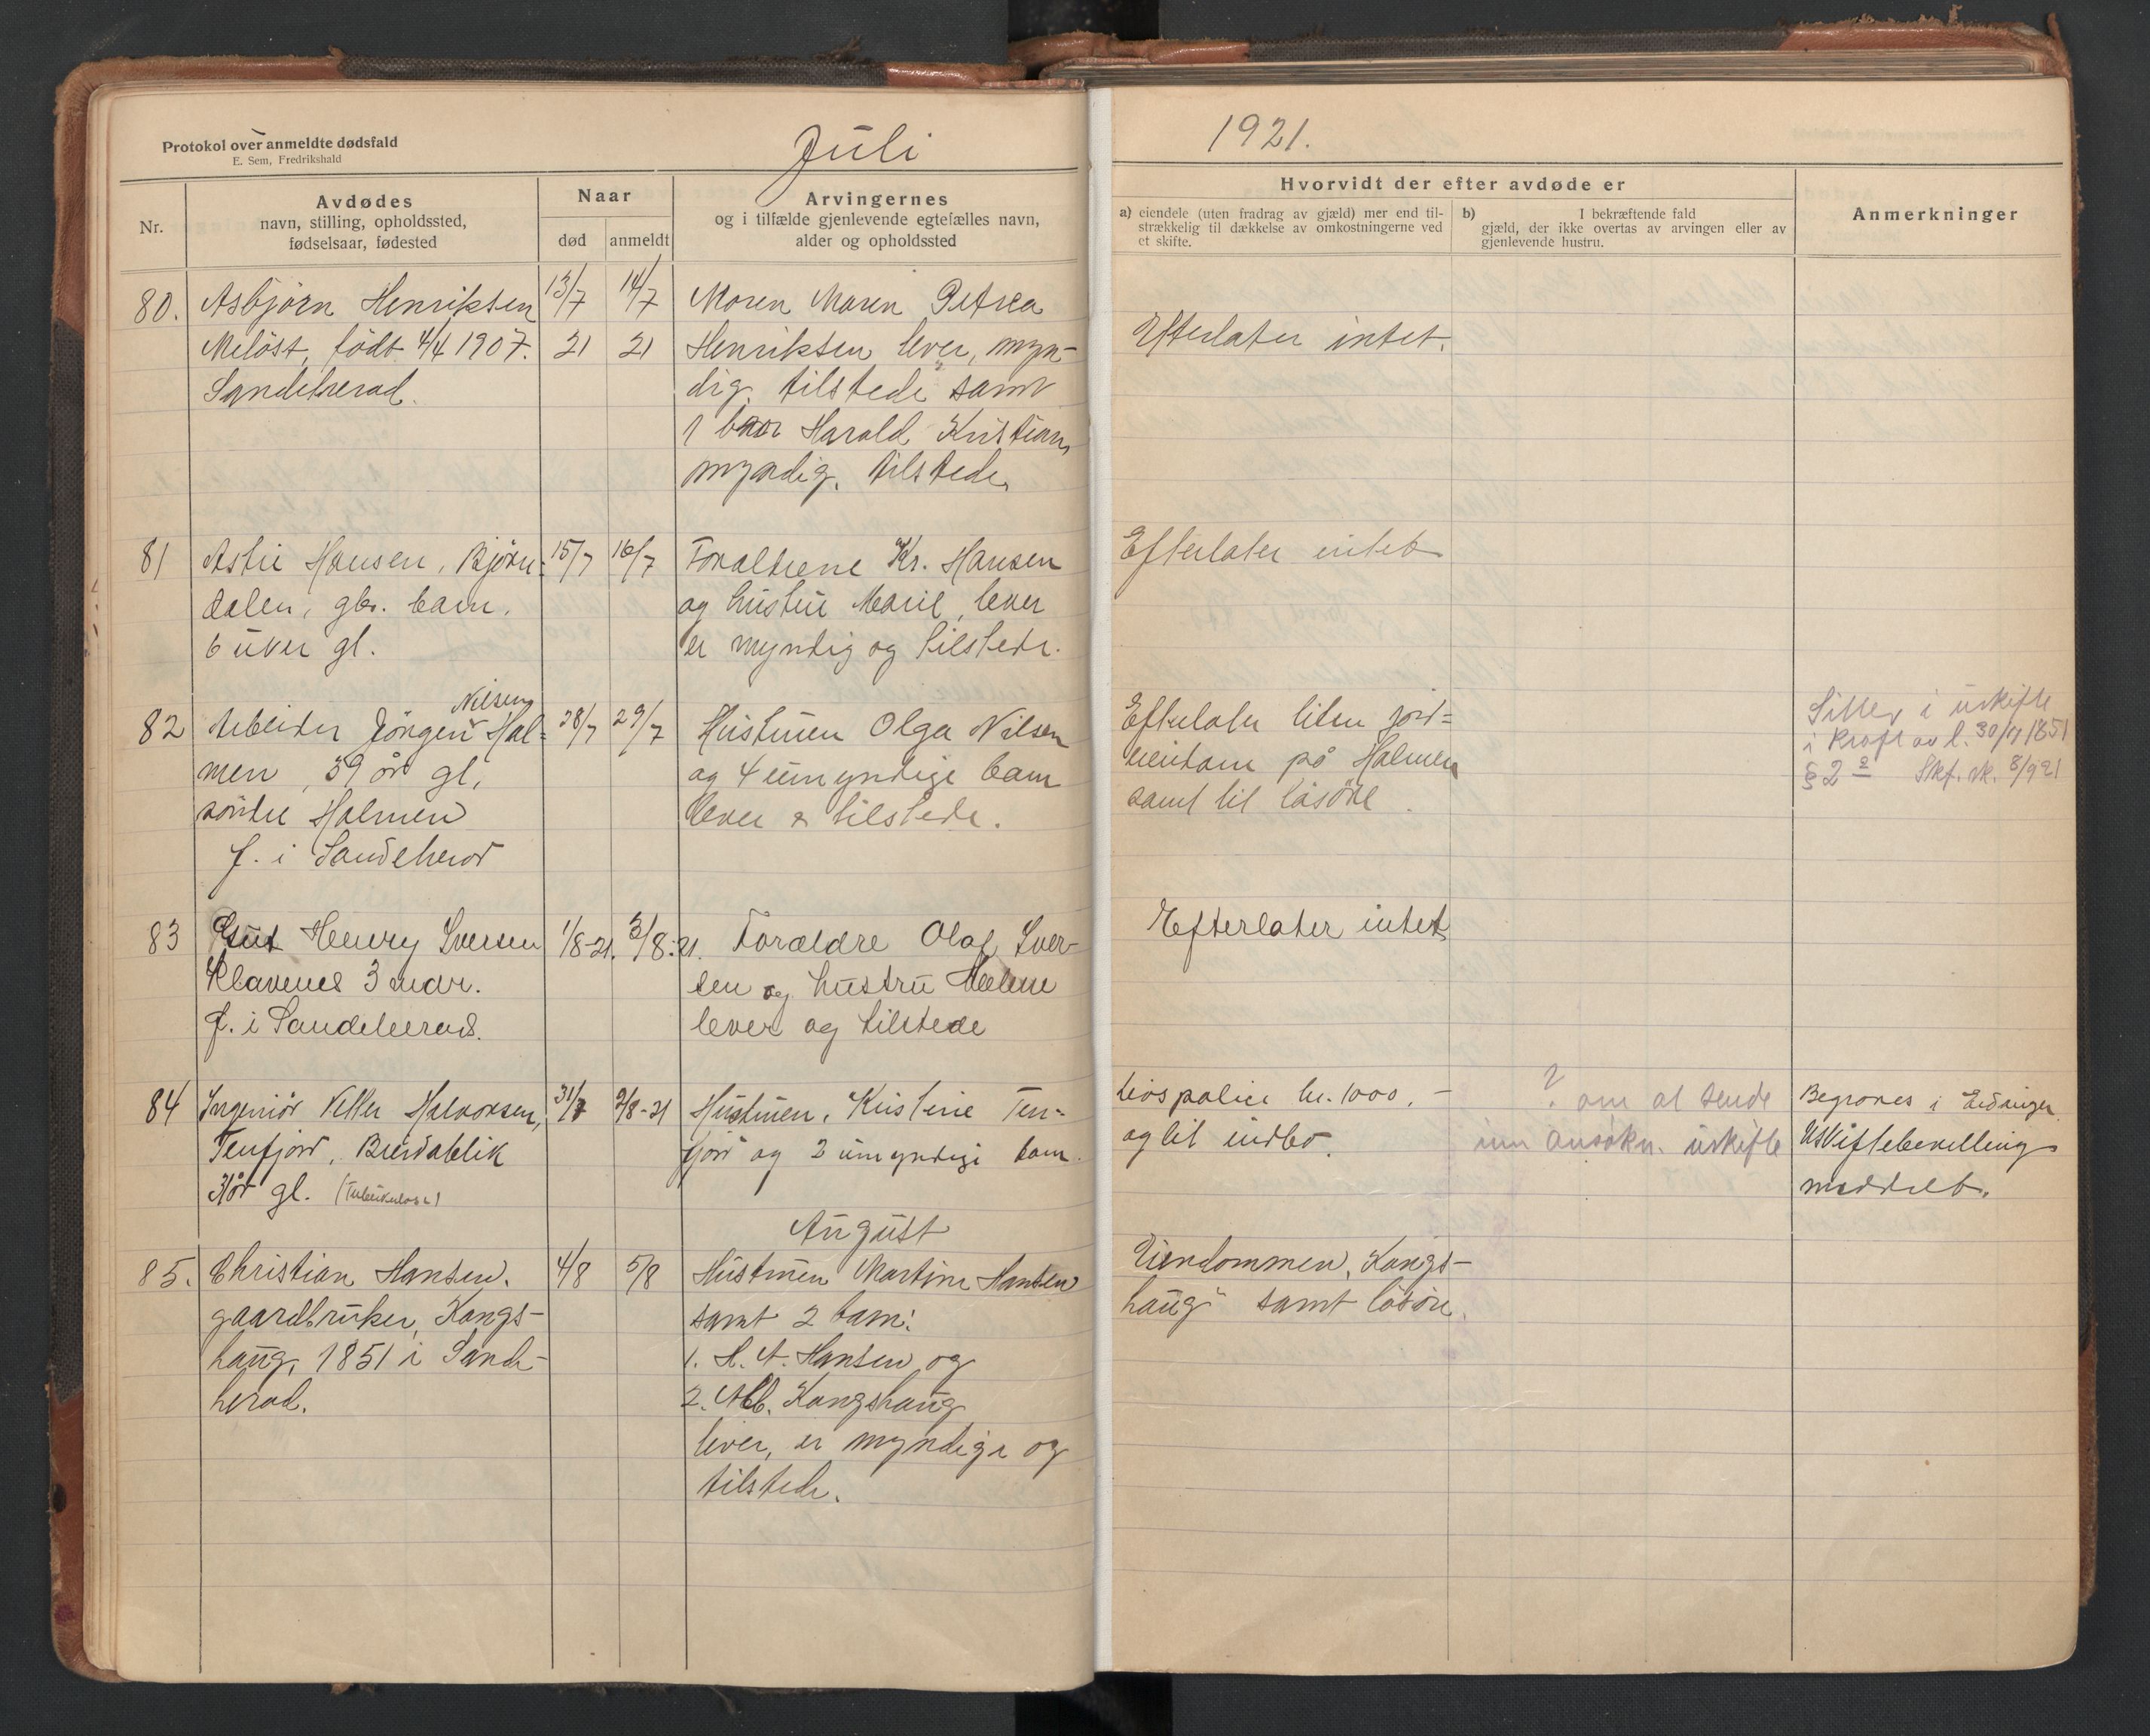 Protokol over anmeldte dødsfald
E. Sem, Fredrikshald
Juli
1921.
Nr.
Avdødes
navn, stilling, opholdssted,
fødselsaar, fødested
Naar
død
anmeldt
Arvingernes
og i tilfælde gjenlevende egtefælles navn,
alder og opholdssted
Hvorvidt der efter avdøde er
a) eiendele (uten fradrag av gjæld) mer end til-
strækkelig til dækkelse av omkostningerne ved
et skifte.
b) I bekræftende fald
gjæld, der ikke overtas av arvingen eller av
gjenlevende hustru.
Anmerkninger
80.
Asbjørn Henriksen
Meløst, født 4/4 1907.
Sandeherad.
13/7
21
14/7
21
Moren Maren Petrea
Henriksen lever, myn-
dig, tilstede samt
1 bror Harald Kristian,
myndig, tilstede,
Efterlater intet.
81
Hansen, Bjørn-
dalen, gbr. barn,
6 uker gl.
15/7
16/7
Forældrene Kr. Hansen
og hustru Marie, lever
er myndig og tilstede.
Efterlater intet
82
Nilsen
Arbeider Jörgen Hal=
men, 39 år gl,
söndre Halmen
f. i Sandeherad
28/7
29/7
Hustruen Olga Nilsen
og 4 umyndige barn
lever & tilstede.
Efterlater liten jord=
eiendom på Halmen
samt lit løsöre.
Sitter i uskifte
i kraft av l. 30/7 1851
§ 2 Skf. sk. 8/9 21
83
Gut Henry Iversen
Klavenes 3 mdr.
f. i Sandeherad.
1/8-21.
3/8-21.
Forældre Olaf Iver-
sen og hustru Helene
lever og tilstede
Efterlater intet
84
Ingeniör Halvorsen,
Tenfjord, Breidablik
31 år gl. (Tuberkulose)
31/7
2/8-21
Hustruen, Kristine Ten-
fjord og 2 umyndige barn.
Livspolice kr. 1000,-
og lit indbo.
? om at sende
inn ansökn. uskifte
Begraves i Eidanger
Uskiftebevilling
meddelt.
August
85.
Christian Hansen,
gaardbruker, Kongs-
haug, 1851 i Sande-
herad.
4/8
5/8
Hustruen Martine Hansen
samt 2 barn:
1. H. A. Hansen og
2. Alb. Kongshaug
lever, er myndige og
tilstede.
Eiendommen, Kongs-
haug" samt løsöre.